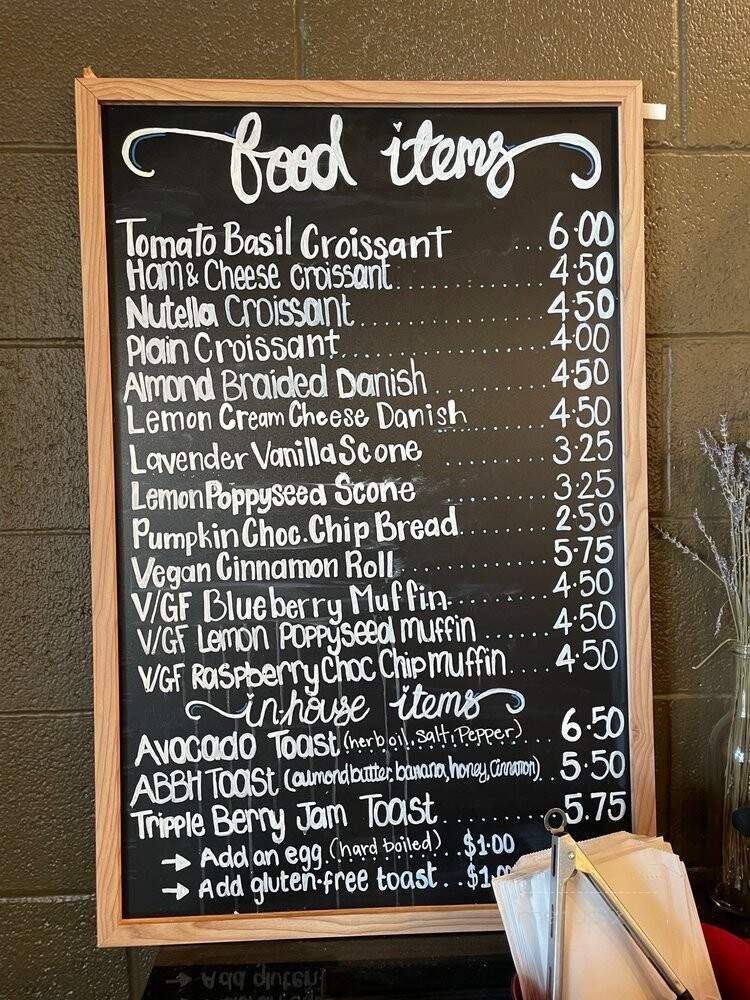 food items
Tomato Basil Croissant ... 6.00
Ham & Cheese croissant ... 4.50
Nutella Croissant ... 4.50
Plain Croissant ... 4.00
Almond Braided Danish ... 4.50
Lemon Cream Cheese Danish ... 4.50
Lavender Vanilla Scone ... 3.25
Lemon Poppyseed Scone ... 3.25
Pumpkin Choc. Chip Bread ... 2.50
Vegan Cinnamon Roll ... 5.75
V/GF Blueberry Muffin ... 4.50
V/GF Lemon Poppyseed Muffin ... 4.50
V/GF Raspberry Choc Chip Muffin ... 4.50
in-house items
Avocado Toast (herb oil, salt, Pepper) 6.50
ABBH Toast (aumond butter, banana, honey, Cinnamon) 5.50
Tripple Berry Jam Toast ... 5.75
→ Add an egg (hard boiled) .. $1.00
→ Add gluten-free toast .. $1.0
Add gluten